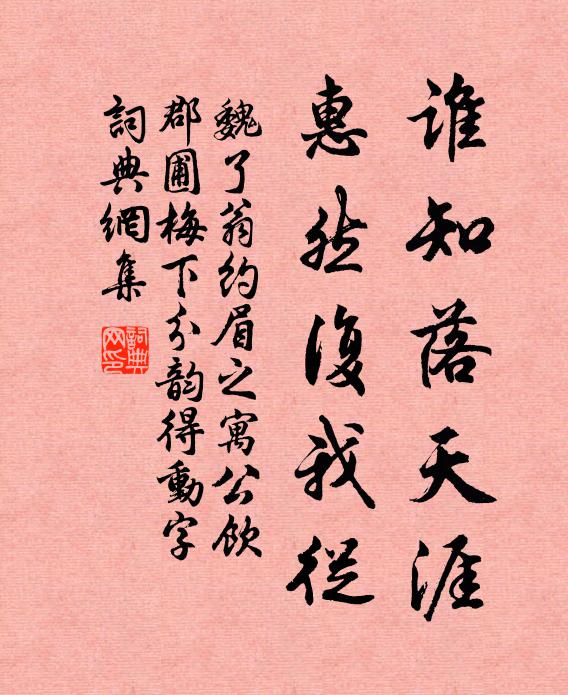 誰知落天涯
惠然復我從
魏了翁約眉之寓公飲
郡圃梅下分韵得動字
詞典網集
詞典网印